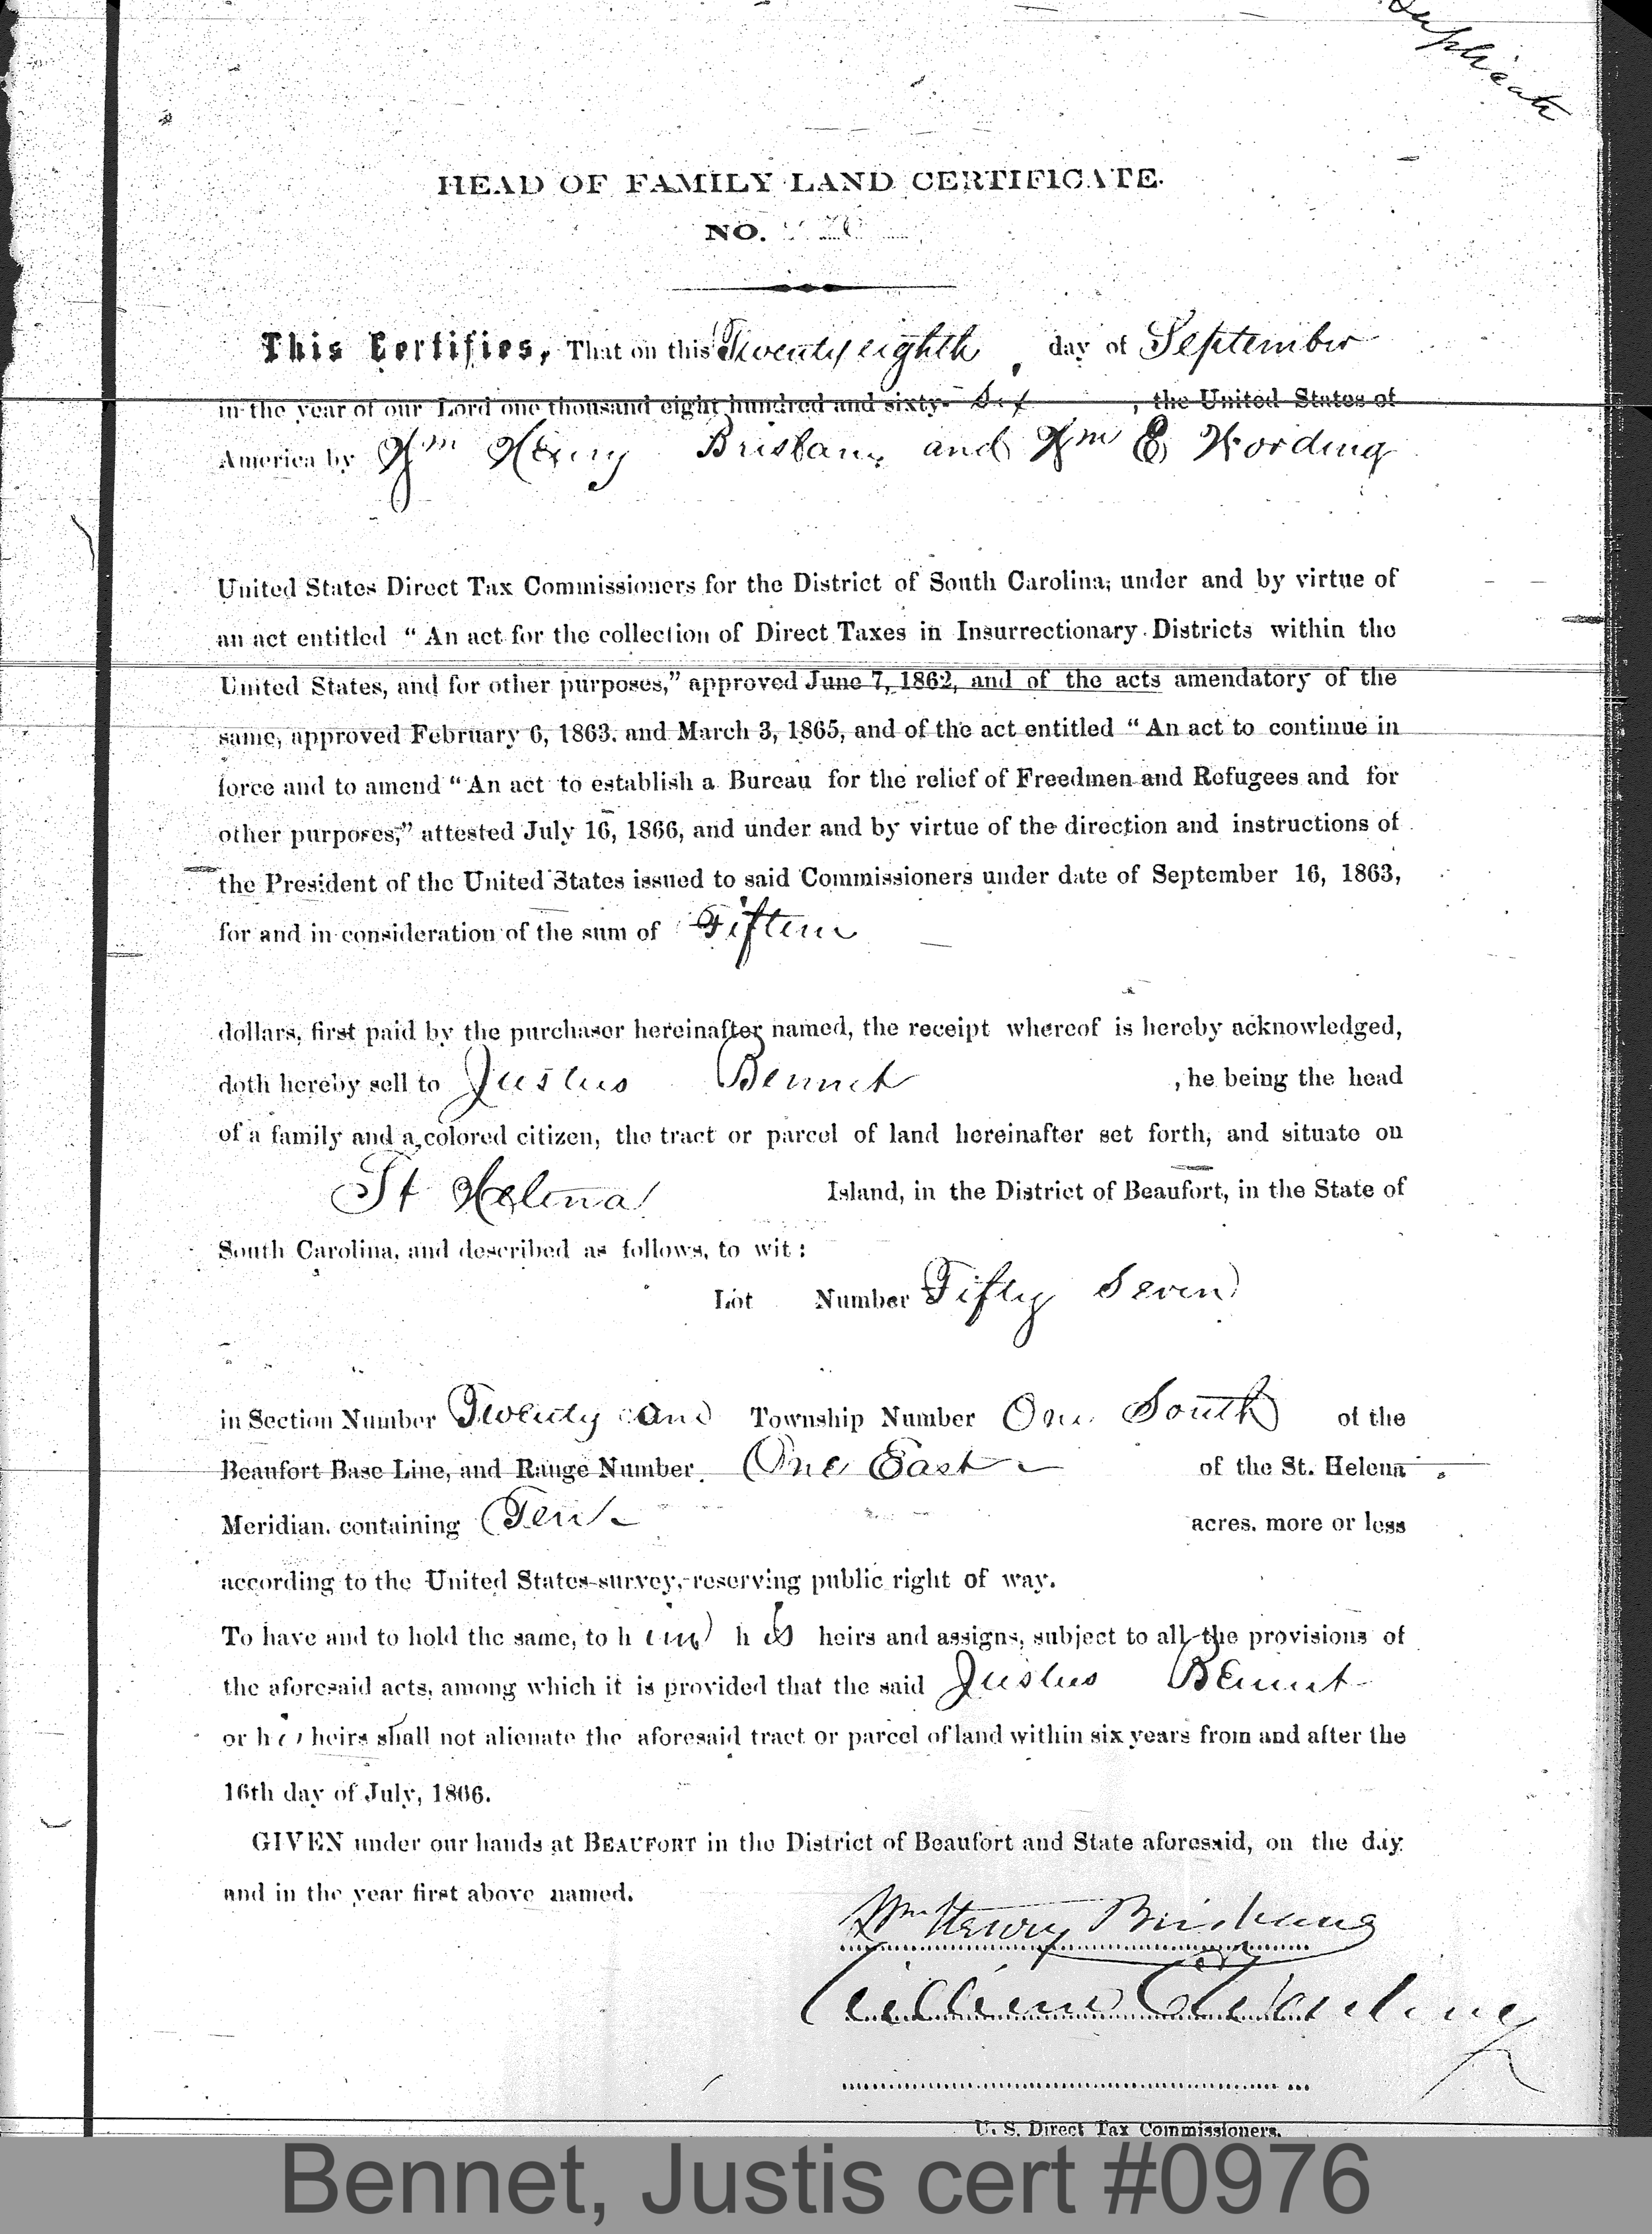 Duplicate
HEAD OF FAMILY LAND CERTIFICATE.
NO.
This Certifies, That on this Twenty eighth day of September
in the year of our Lord one thousand eight hundred and sixty- Six, the United States of
America by Wm Henry Brisbane and Wm E Wording
United States Direct Tax Commissioners for the District of South Carolina, under and by virtue of
an act entitled “An act for the collection of Direct Taxes in Insurrectionary Districts within the
United States, and for other purposes,” approved June 7, 1862, and of the acts amendatory of the
same, approved February 6, 1863, and March 3, 1865, and of the act entitled “An act to continue in
force and to amend “An act to establish a Bureau for the relief of Freedmen and Refugees and for
other purposes,” attested July 16, 1866, and under and by virtue of the direction and instructions of
the President of the United States issued to said Commissioners under date of September 16, 1863,
for and in consideration of the sum of Fifteen
dollars, first paid by the purchaser hereinafter named, the receipt whereof is hereby acknowledged,
doth hereby sell to Justus Bennet, he being the head
of a family and a colored citizen, the tract or parcel of land hereinafter set forth, and situate on
St Helena Island, in the District of Beaufort, in the State of
South Carolina, and described as follows, to wit:
Lot Number Fifty Seven
in Section Number Twenty One Township Number One South of the
Beaufort Base Line, and Range Number One East of the St. Helena
Meridian, containing Ten acres, more or less
according to the United States survey, reserving public right of way.
To have and to hold the same, to him his heirs and assigns, subject to all the provisions of
the aforesaid acts, among which it is provided that the said Justus Bennet
or his heirs shall not alienate the aforesaid tract or parcel of land within six years from and after the
16th day of July, 1866.
GIVEN under our hands at BEAUFORT in the District of Beaufort and State aforesaid, on the day
and in the year first above named.
Wm Henry Brisbane
William E Wording
U. S. Direct Tax Commissioners.
Bennet, Justis cert #0976